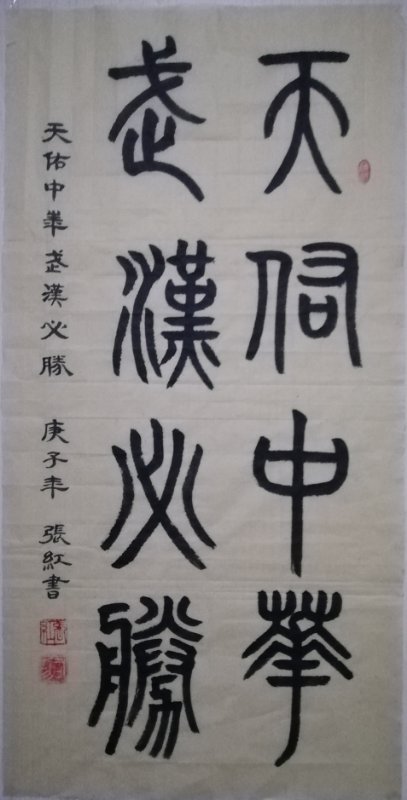 天佑中華
武漢必勝
天佑中華武漢必勝 庚子年 張紅書